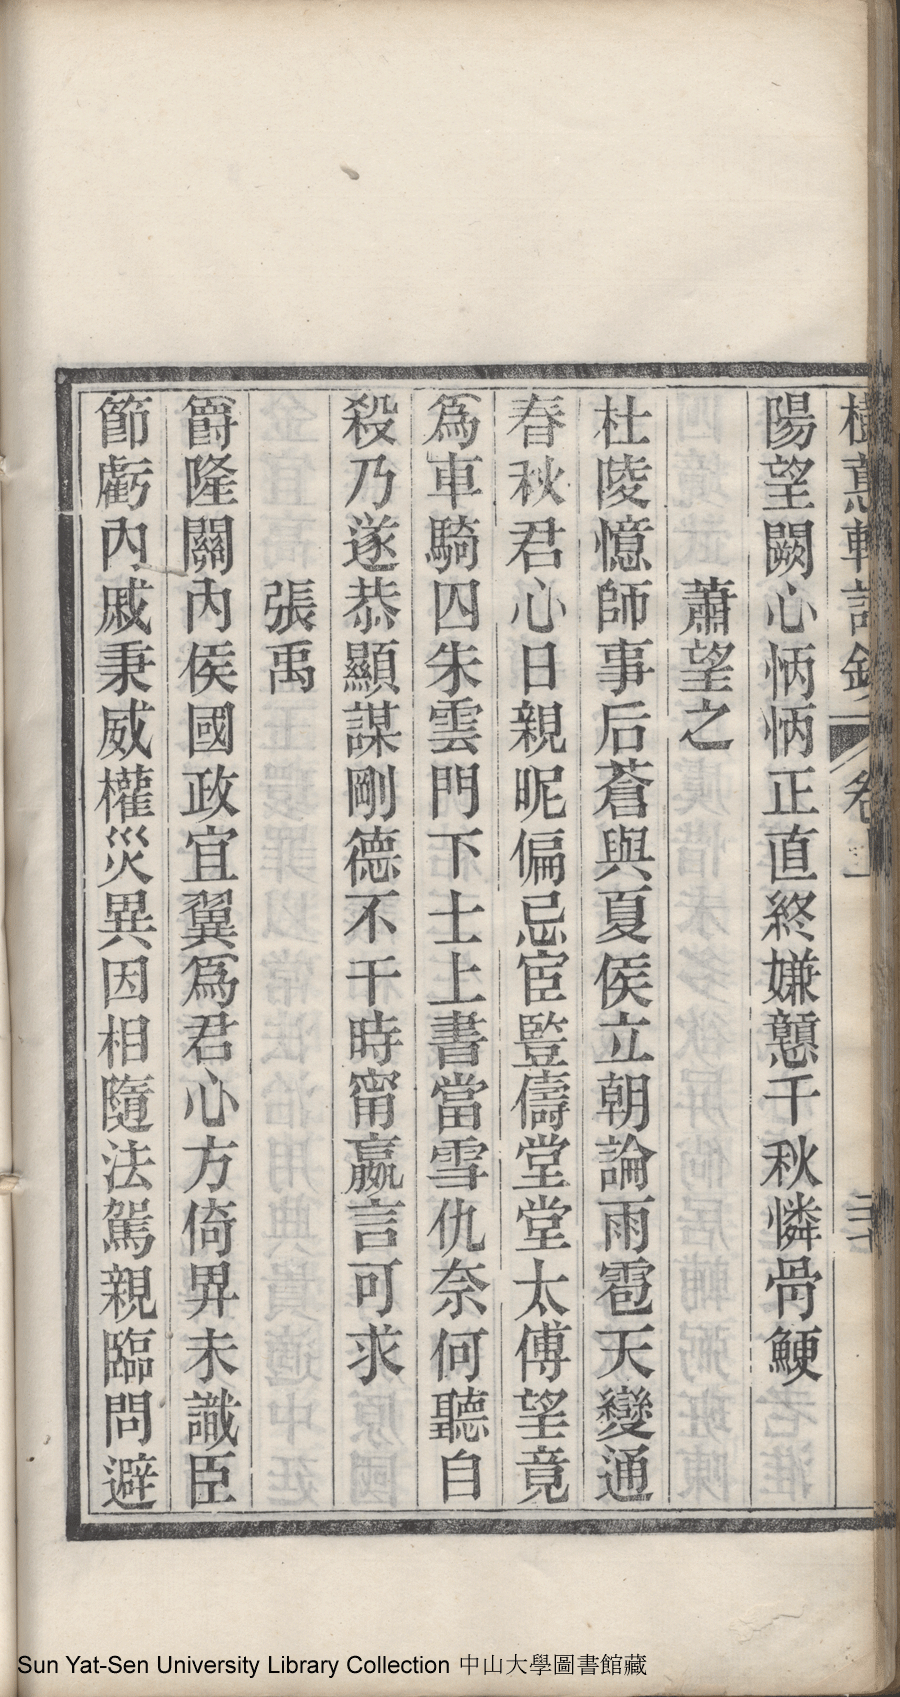 陽望闕心炳炳正直終嫌戇千秋憐骨鯁
蕭望之
杜陵憶師事后蒼與夏侯立朝論雨雹天變通
春秋君心日親昵偏忌宦豎儔堂堂太傅望竟
爲車騎囚朱雲門下士上書當雪仇奈何聽白
殺乃遂恭顯謀剛德不干時甯嬴言可求
張禹
爵隆關內侯國政宜翼爲君心方倚畀未識臣
節虧內戚秉威權災異因相隨法駕親臨問避
Sun Yat-Sen University Library Collection 中山大學圖書館藏